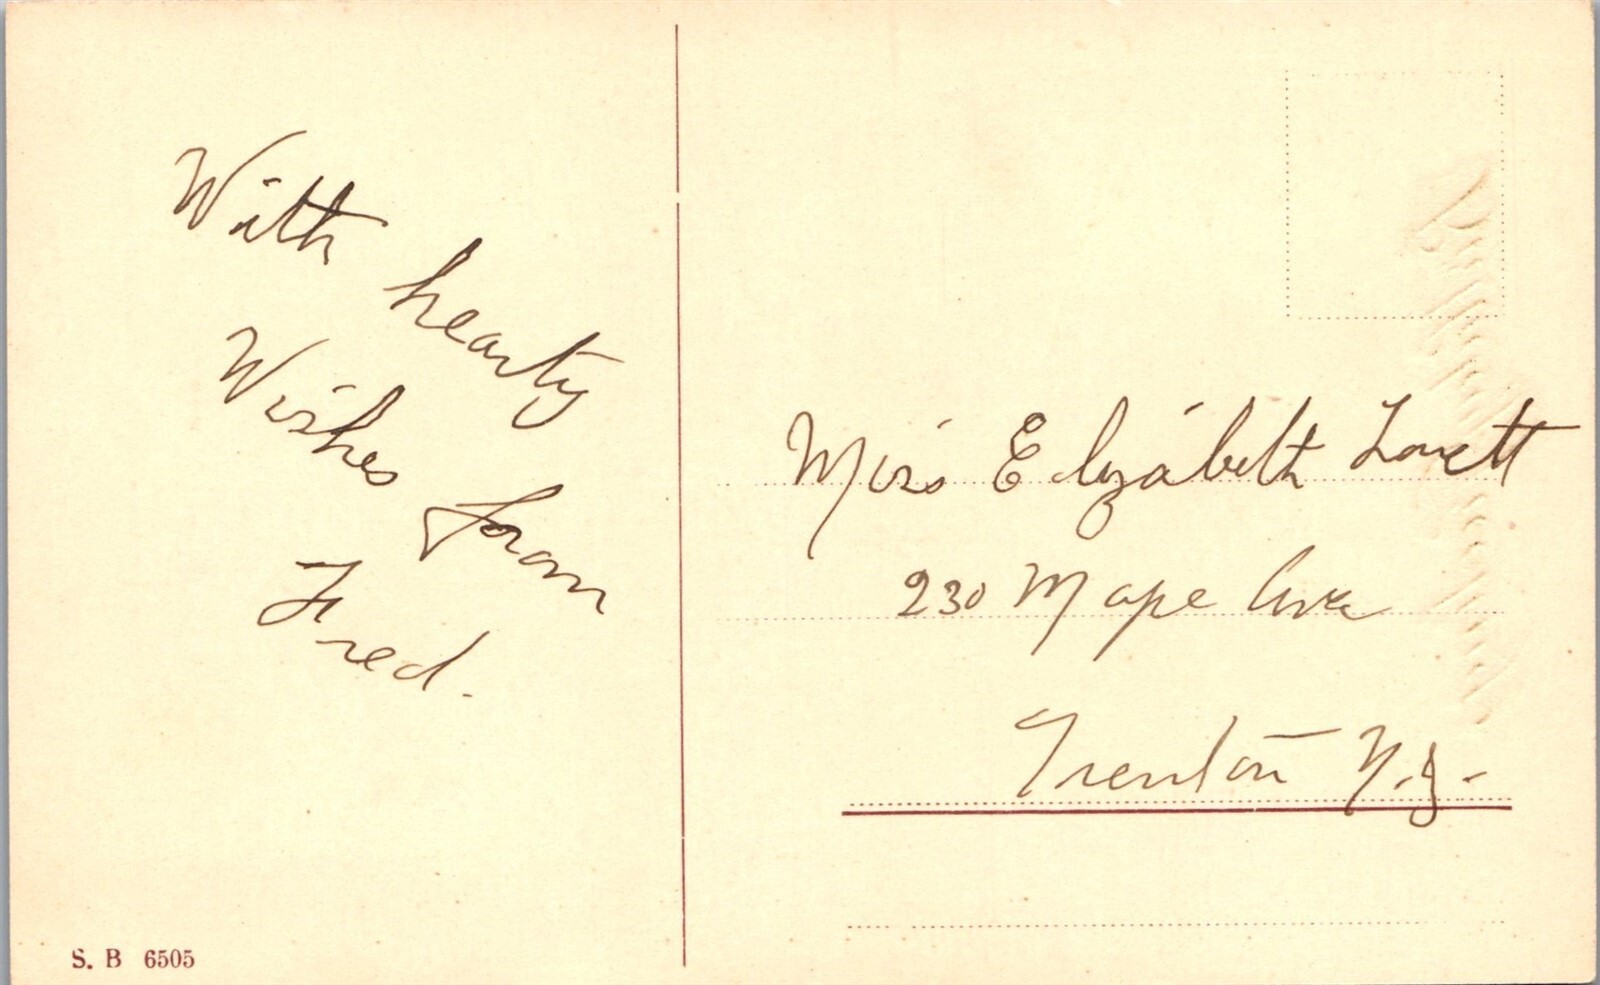 With hearty
Wishes from
Fred.
Miss Elizabeth Lovett
230 Mape Ave
Trenton N.J.
S. B 6505